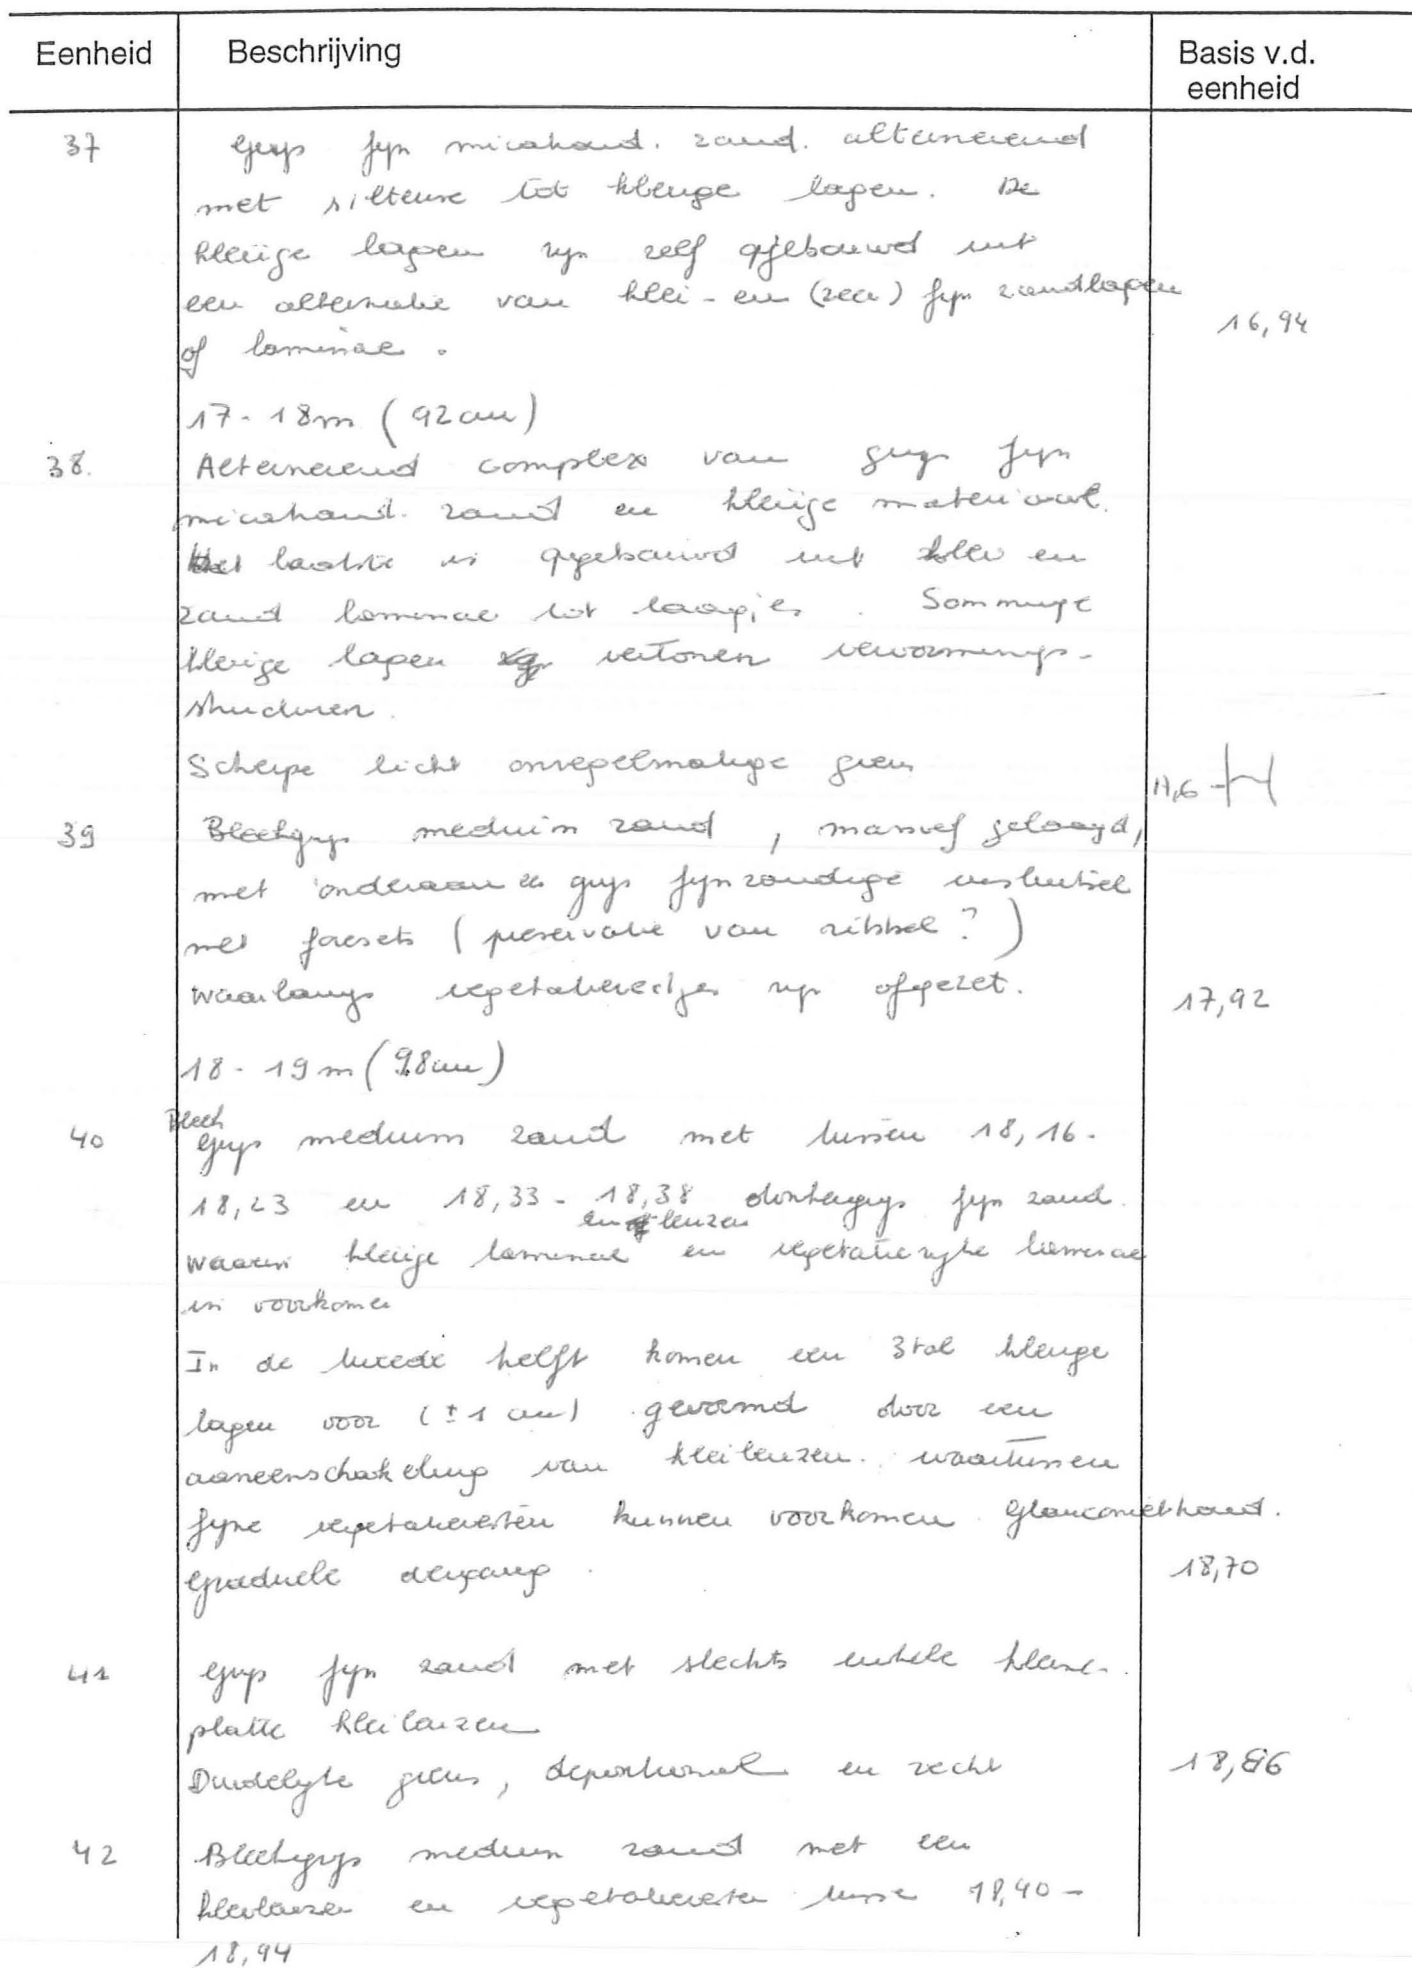 Eenheid Beschrijving Basis v.d. eenheid
37 Grijs fijn micahoud. zand. alternerend
met silteuze tot kleiige lagen. De
kleiige lagen zijn zelf opgebouwd uit
een alternatie van klei - en (zeer) fijn zandlagen
16,94
of laminae.
17 - 18m (92cm)
38. Alternerend complex van grijs fijn
micahoud. zand en kleiige materiaal.
Het laatste is opgebouwd uit klei en
zand laminae tot laagjes. Sommige
kleiige lagen vertonen vervormings-
structuren.
Scherpe licht onregelmatige grens 17,6
39 Bleekgrijs medium zand, massief gelaagd,
met onderaan grijs fijnzandige
met foresets (preservatie van ribbel?)
waarlangs vegetatierestjes zijn afgezet. 17,92
18 - 19m (98cm)
Bleek
40 grijs medium zand met tussen 18,16 -
18,23 en 18,33 - 18,38 donkergrijs fijn zand.
en lenzen
waarin kleiige laminae en vegetatierijke laminae
in voorkomen
In de tweede helft komen een 3tal kleiige
lagen voor (± 1 cm) gevormd door een
aaneenschakeling van kleilenzen. waartussen
fijne vegetatieresten kunnen voorkomen. Glauconiethoud.
Graduele overgang. 18,70
41 Grijs fijn zand met slechts enkele kleine
platte kleilenzen
Duidelijke grens, depositioneel en recht 18,86
42 Bleekgrijs medium zand met een
kleilenzen en vegetatieresten tusse 18,40 -
18,94